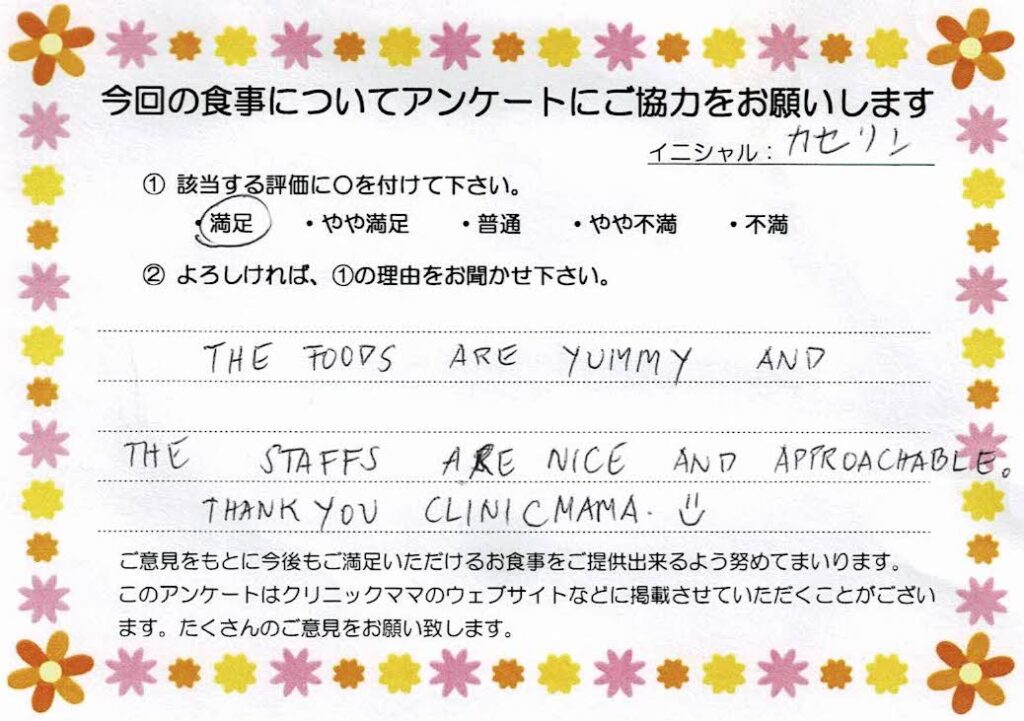 今回の食事についてアンケートにご協力をお願いします
イニシャル： カセリン
① 該当する評価に○を付けて下さい。
・満足 ・やや満足 ・普通 ・やや不満 ・不満
② よろしければ、①の理由をお聞かせ下さい。
THE FOODS ARE YUMMY AND
THE STAFFS ARE NICE AND APPROACHABLE。
THANK YOU CLINICMAMA.
ご意見をもとに今後もご満足いただけるお食事をご提供出来るよう努めてまいります。
このアンケートはクリニックママのウェブサイトなどに掲載させていただくことがござい
ます。たくさんのご意見をお願い致します。